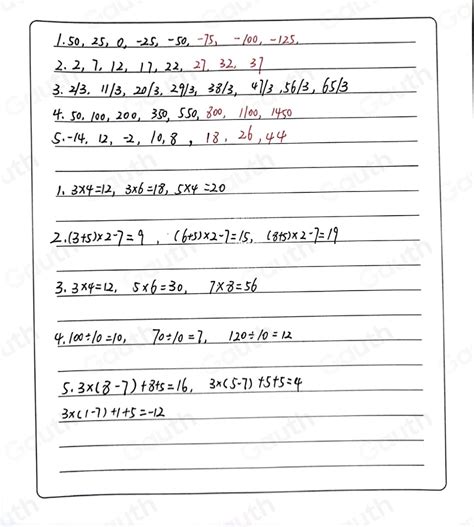 1. 50, 25, 0, -25, -50, -75, -100, -125.
2. 2, 7, 12, 17, 22, 27, 32, 37
3. 2/3, 11/3, 20/3, 29/3, 38/3, 47/3, 56/3, 65/3
4. 50, 100, 200, 350, 550, 800, 1100, 1450
5. -14, 12, -2, 10, 8, 18, 26, 44
1. 3×4=12, 3×6=18, 5×4=20
2. (3+5)×2-7=9, (6+5)×2-7=15, (8+5)×2-7=19
3. 3×4=12, 5×6=30, 7×8=56
4. 100÷10=10, 70÷10=7, 120÷10=12
5. 3×(8-7)+8+5=16, 3×(5-7)+5+5=4
3×(1-7)+1+5=-12